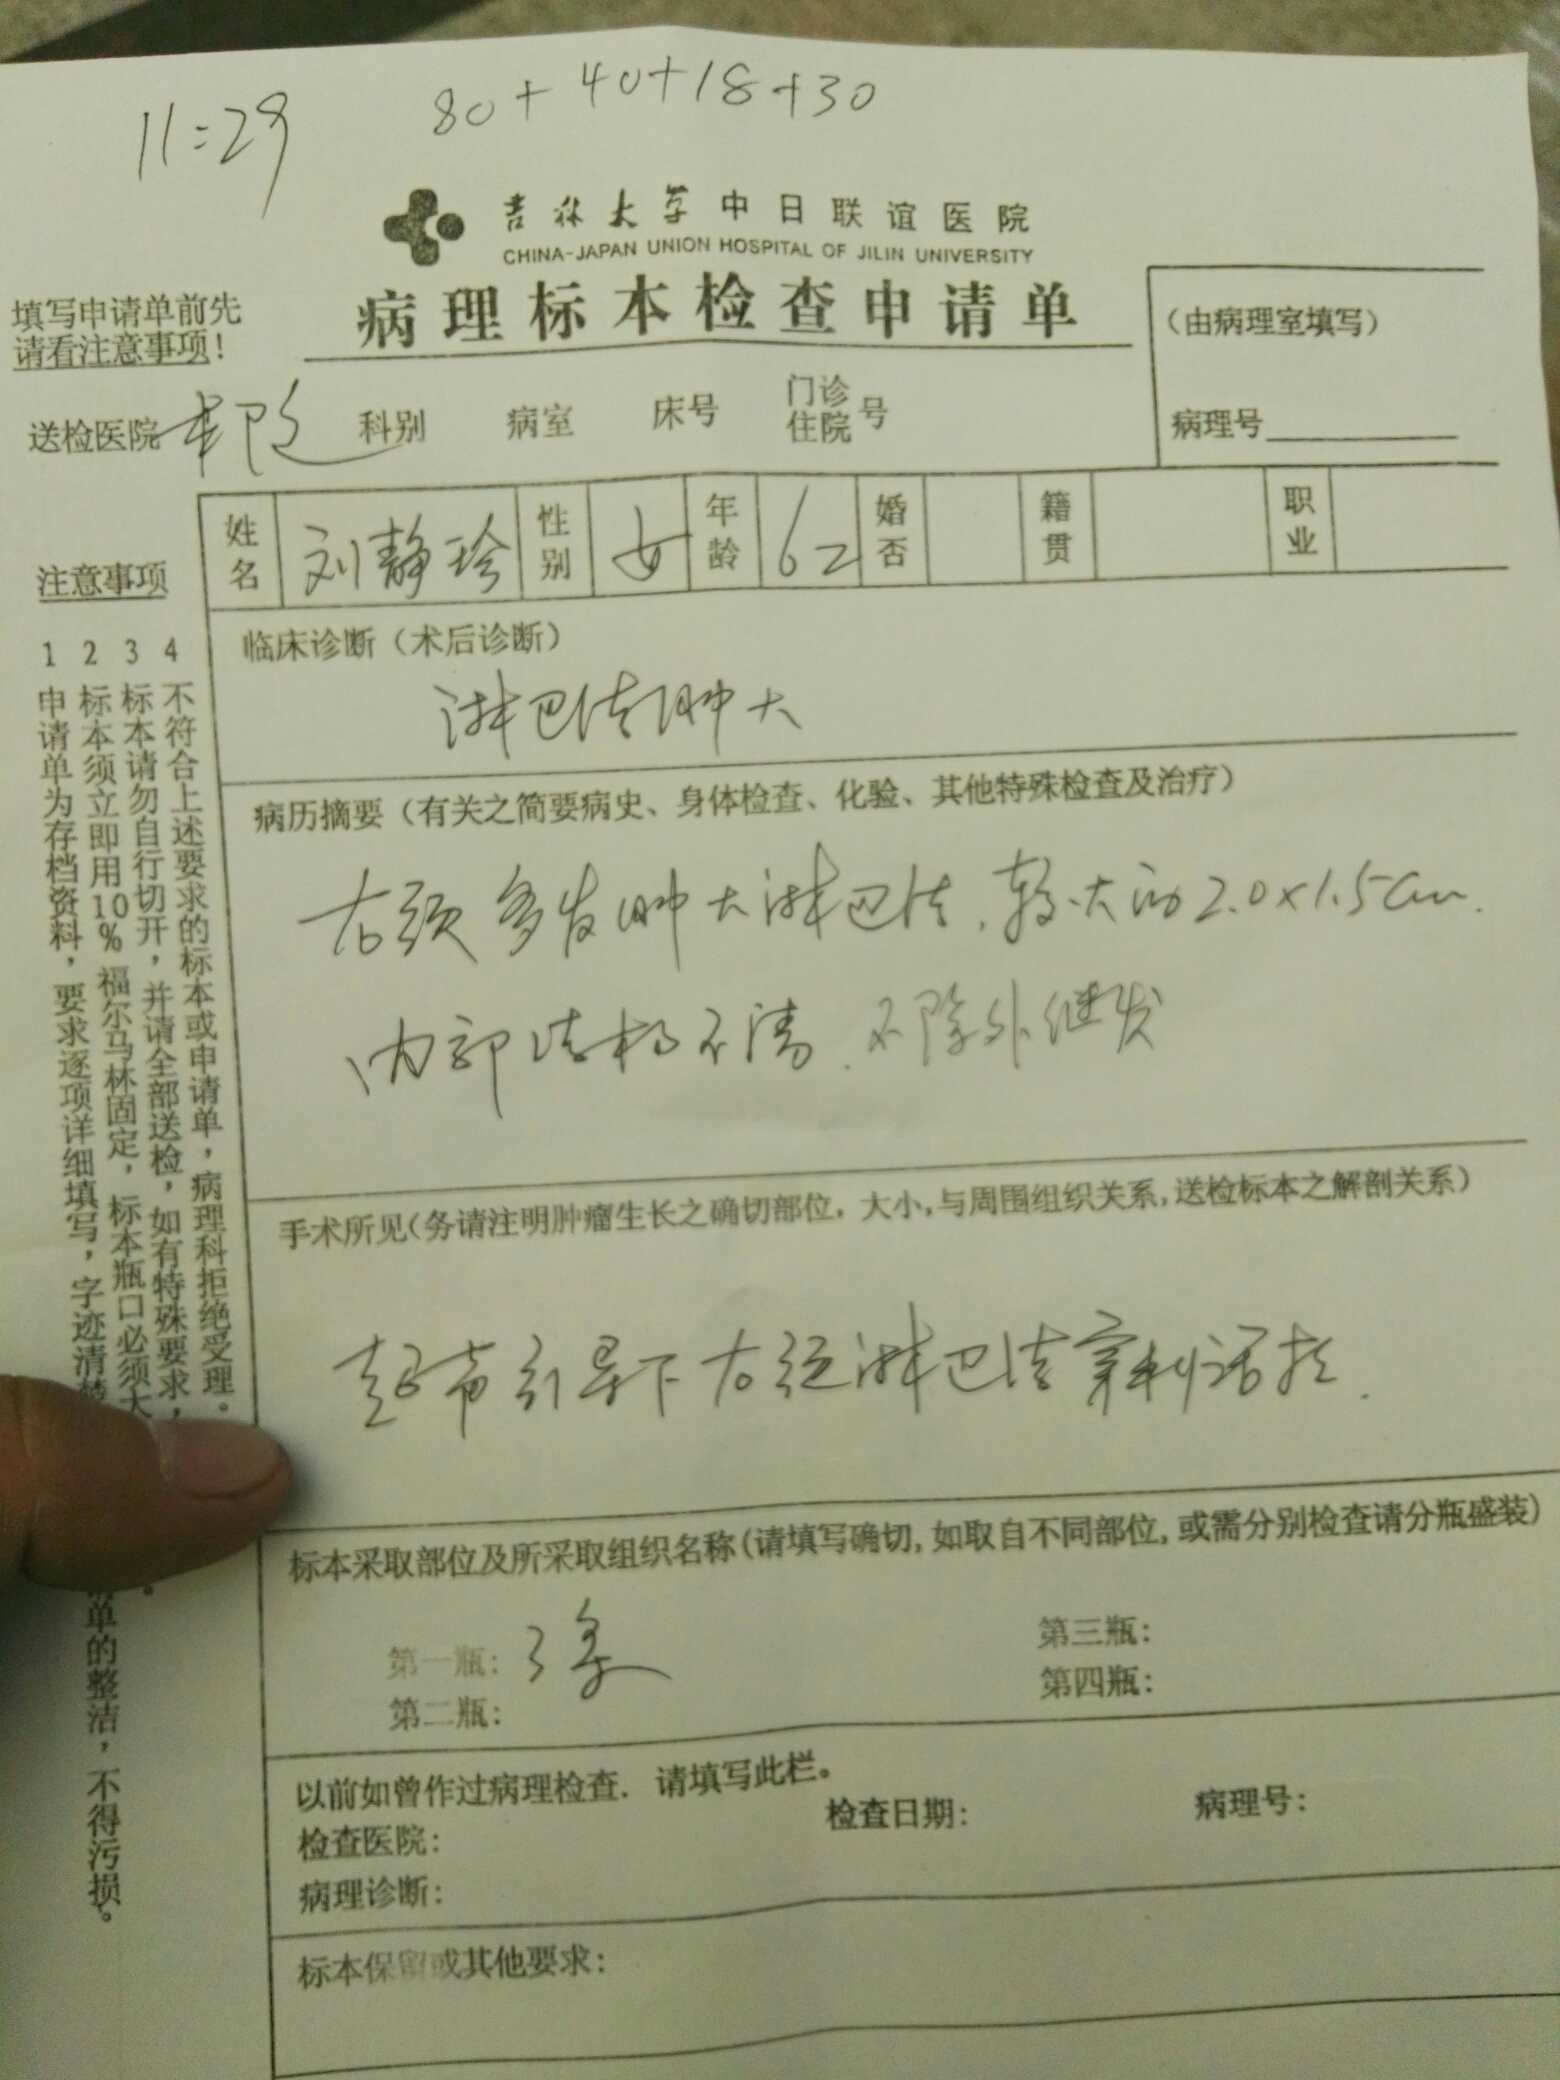 11:29
80+40+18+30
吉林大学中日联谊医院
CHINA-JAPAN UNION HOSPITAL OF JILIN UNIVERSITY
病理标本检查申请单
填写申请单前先
请看注意事项!
(由病理室填写)
病理号
送检医院 本院 科别 病室 床号 门诊住院号
姓名 刘静珍 性别 女 年龄 62 婚否 籍贯 职业
注意事项
1 申请单为存档资料,要求逐项详细填写,字迹清 单的整洁,不得污损。
2 标本须立即用10%福尔马林固定,标本瓶口必须大
3 标本请勿自行切开,并请全部送检,如有特殊要求,
4 不符合上述要求的标本或申请单,病理科拒绝受理。
临床诊断(术后诊断)
淋巴结肿大
病历摘要(有关之简要病史、身体检查、化验、其他特殊检查及治疗)
右颈多发肿大淋巴结,较大约2.0×1.5cm.
内部结构不清,不除外继发
手术所见(务请注明肿瘤生长之确切部位,大小,与周围组织关系,送检标本之解剖关系)
超声引导下右颈淋巴结穿刺活检.
标本采取部位及所采取组织名称(请填写确切,如取自不同部位,或需分别检查请分瓶盛装)
第一瓶: 3条
第二瓶:
第三瓶:
第四瓶:
以前如曾作过病理检查. 请填写此栏。
检查医院: 检查日期: 病理号:
病理诊断:
标本保留或其他要求: